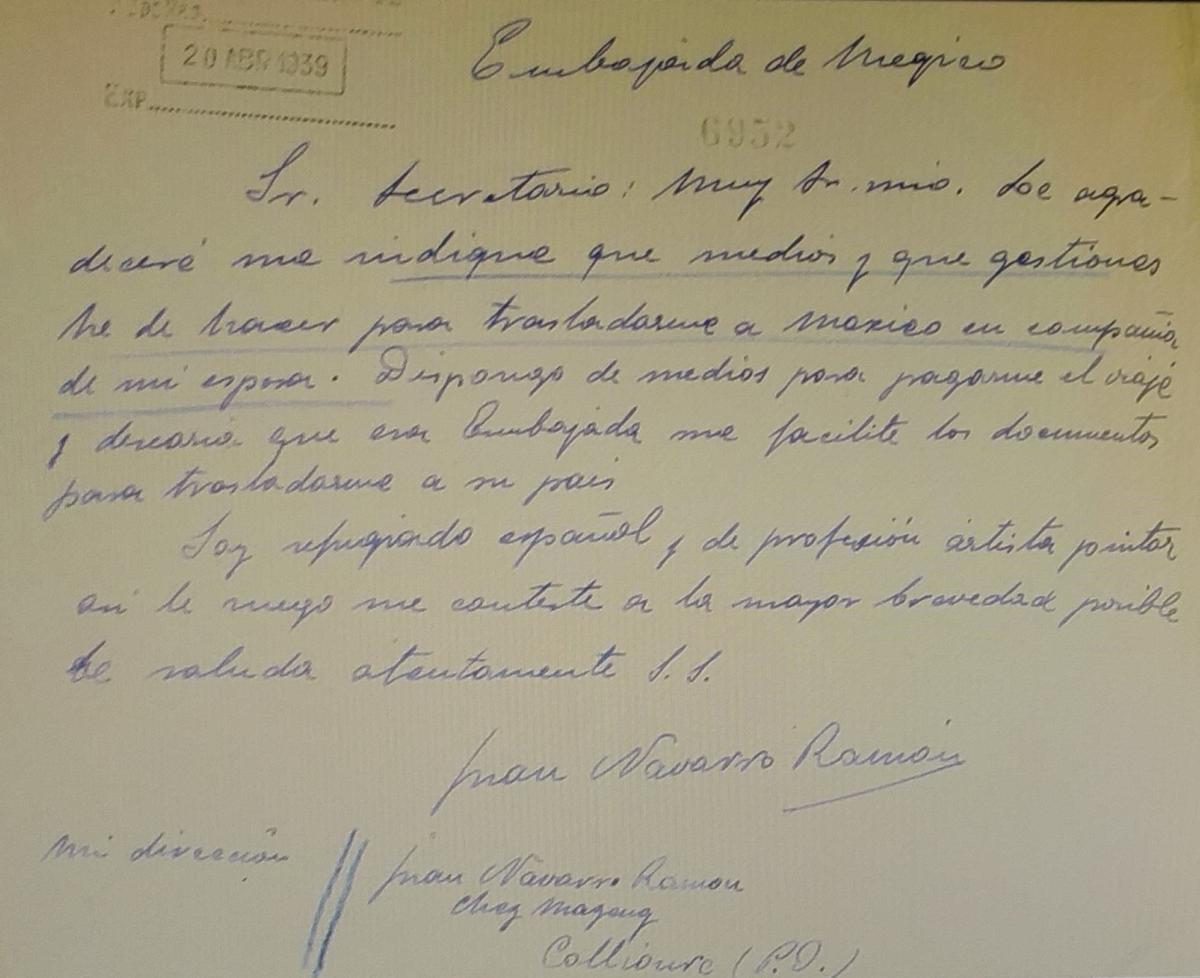 20 ABR 1939
EXP.
Embajada de Megico
6952
Sr. Secretario: Muy Sr. mio. Le agra-
deceré me indique que medios y que gestiones
he de hacer para trasladarme a Maxico en compañia
de mi esposa. Dispongo de medios para pagarme el viaje
y desearia que esa Embajada me facilite los documentos
para trasladarme a su pais
Soy refugiado español y de profexión artista pintor
asi le ruego me conteste a la mayor brevedad posible
Le saluda atentamente S. S.
Juan Navarro Ramón
Mi dirección
Juan Navarro Ramon
Chez
Collioure (P.O.)